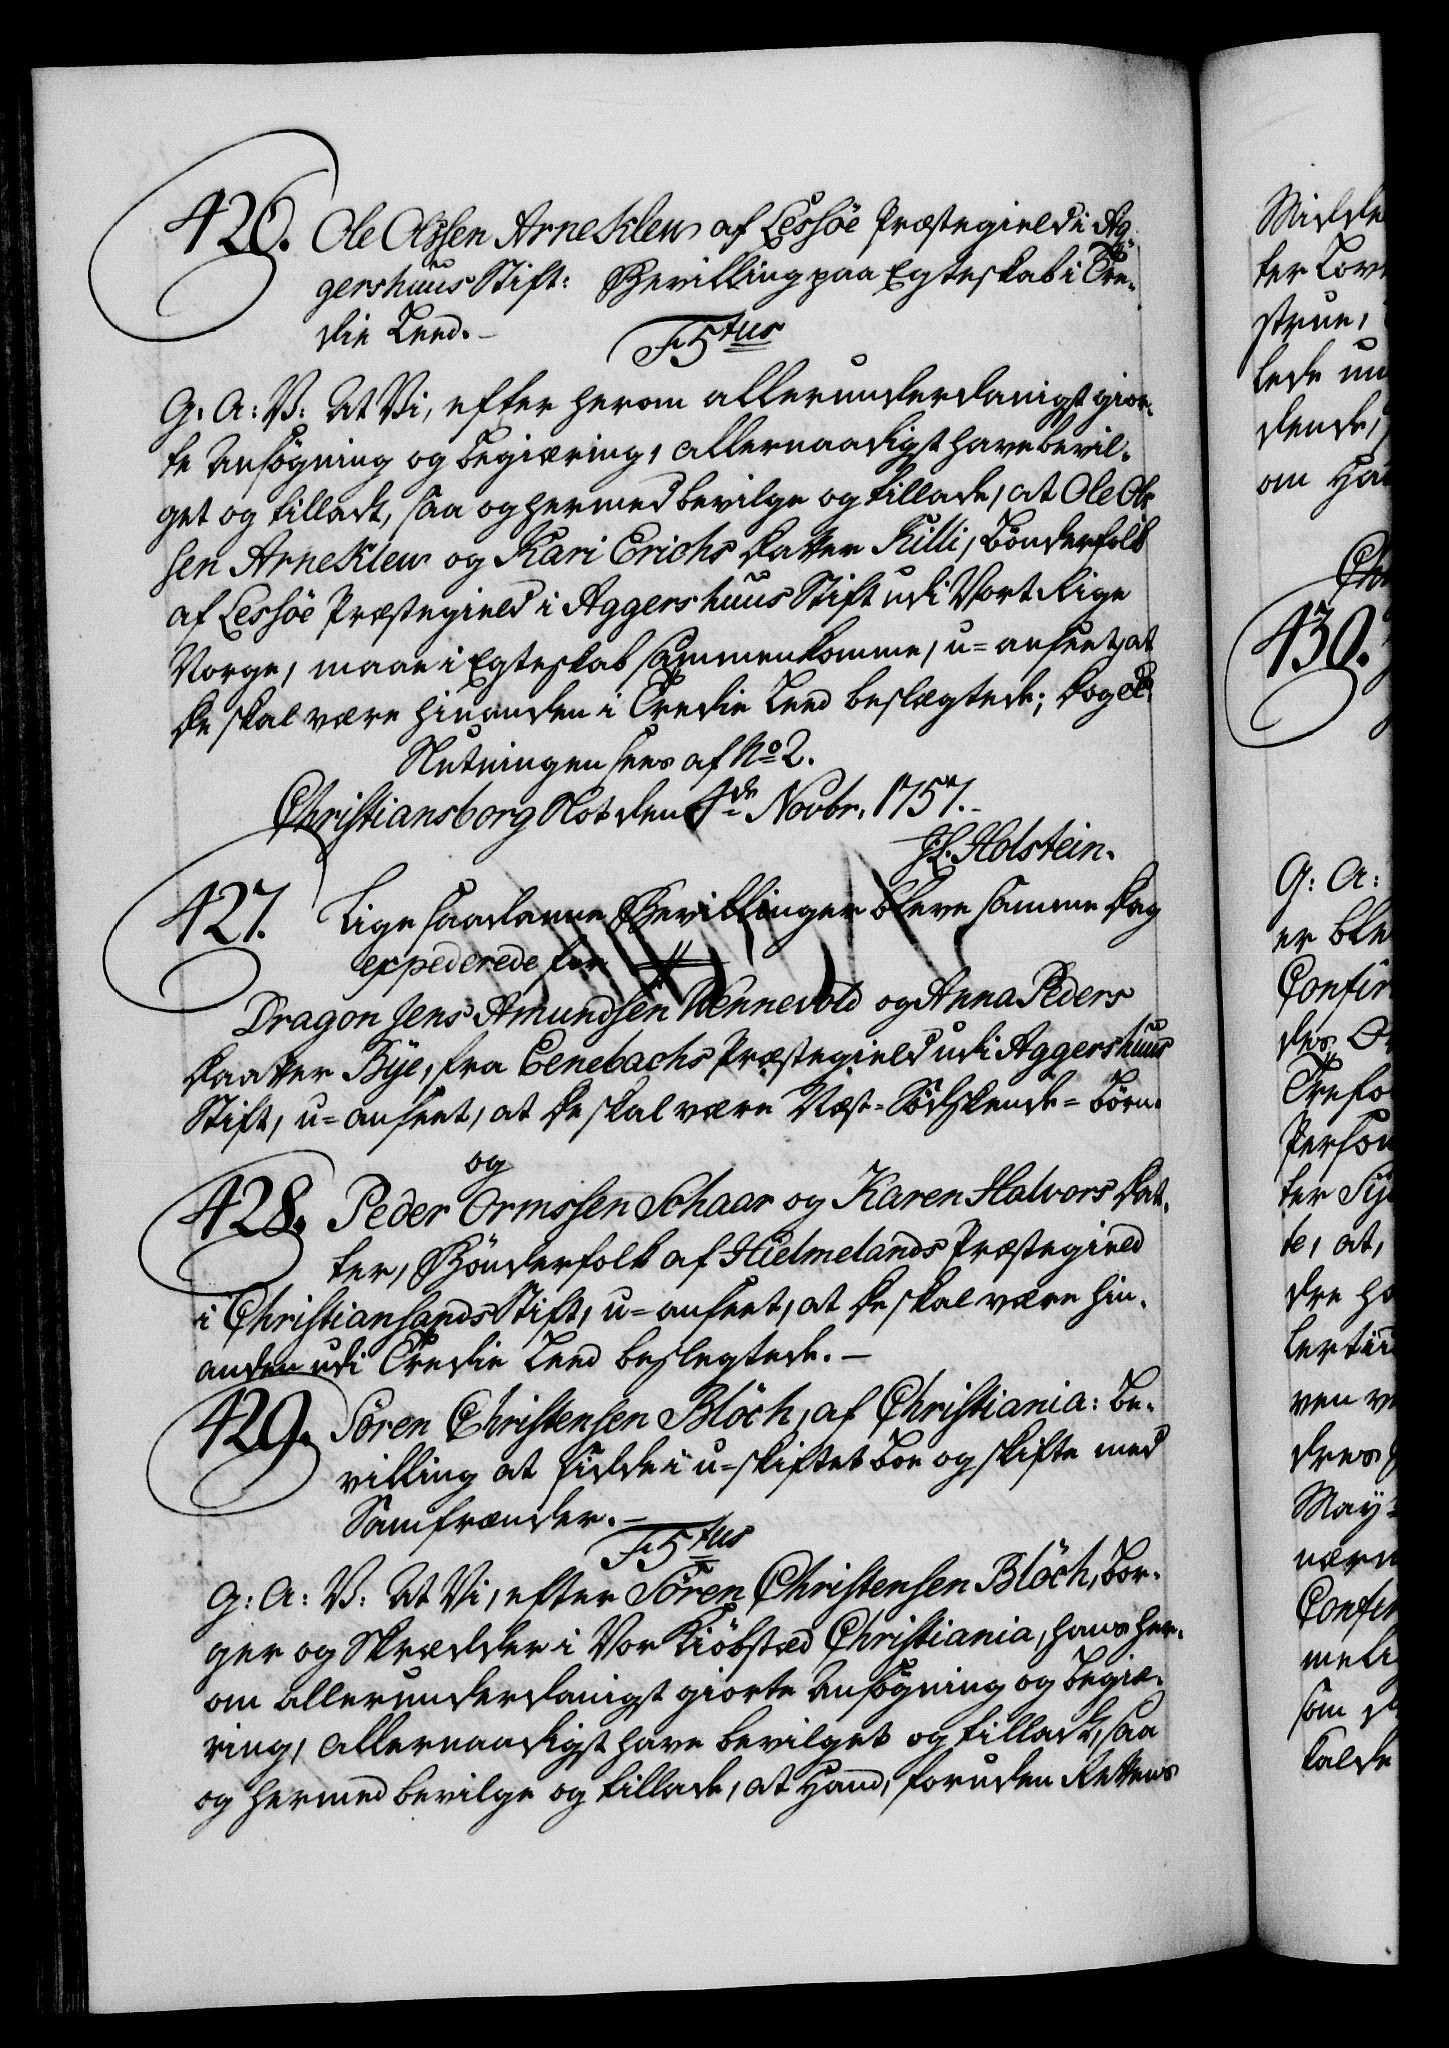 426. Ole Olssen Arneklew af Lessøe Præstegield i Ag-
gershuus Stift: Bevilling paa Egteskab i Tre-
die Leed.
F5tus
G: A: V: At Vi, efter herom allerunderdanigst gior-
te Ansøgning og Begiæring, allernaadigst have bevil-
get og tilladt, saa og hermed bevilge og tillade, at Ole Ols-
sen Arneklew og Kari Erichs Datter Killi, Bønderfolk
af Lessøe Præstegield i Aggershuus Stift udi Vort Rige
Norge, maae i Egteskab sammenkomme, u-anseet, at
de skal være hinanden i Tredie Leed beslægtede; dog etc.
Slutningen sees af No 2.
Christiansborg Slot den 4de Novbr. 1757.
J L Holstein.
427. Lige saadanne Bevillinger bleve samme Dag
expederede for
Dragon Jens Amundsen Wennevold og Anna Peders
Daatter Bye, fra Eenebachs Præstegield udi Aggershuus
Stift, u-anseet, at de skal være Næst-Sødskende-Børn.
og
428. Peder Ormssen Schaar og Karen Halvors Dat-
ter, Bønderfolk af Hielmelands Præstegield
i Christiansands Stift, u-anseet, at de skal være hin-
anden udi Tredie Leed beslegtede.
429. Søren Christensen Bloch, af Christiania: Be-
villing at sidde i u-skiftet Boe og skifte med
Samfrænder.
F5tus
G: A: V: At Vi, efter Søren Christensen Bloch, Bor-
ger og Skrædder i Vor Kiøbstæd Christiania, hans her-
om allerunderdanigst giorte Ansøgning og Begiæ-
ring, allernaadigst have bevilget og tilladt, saa
og hermed bevilge og tillade, at Hand, foruden Rettens
Midde
ter Lov
strue,
lede un
dende,
om Han
Chr
430.
G: A:
er ble
Confir
des
Trefo
Person
ter
te, at,
dre ha
lertii
ven
dres
May
nærv
Confir
meli
som
kalde